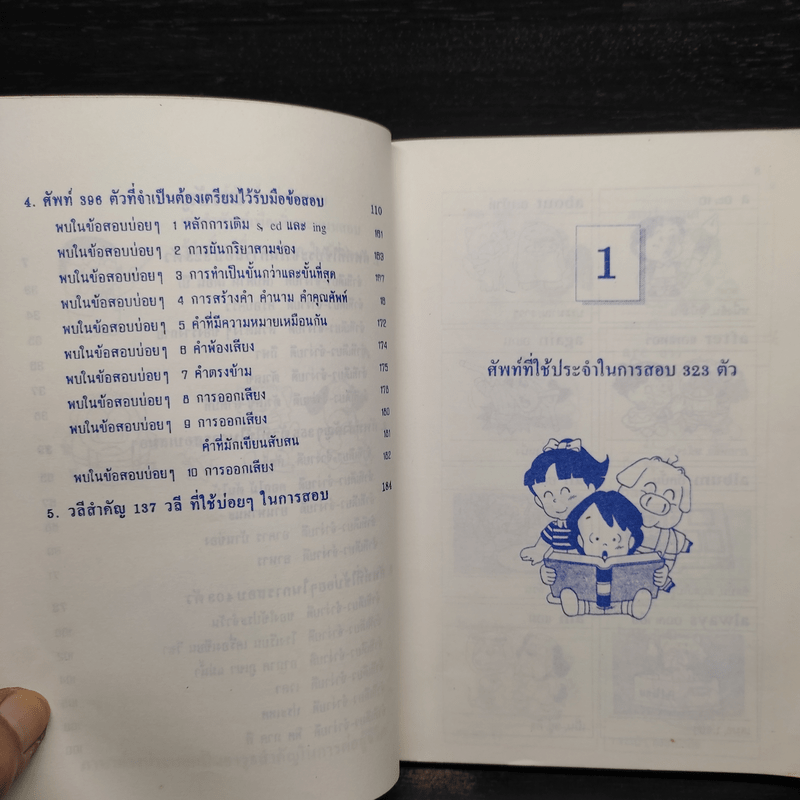 4. ศัพท์ 396 ตัวที่จำเป็นต้องเตรียมไว้รับมือข้อสอบ 110
พบในข้อสอบบ่อยๆ 1 หลักการเติม s, ed และ ing 181
พบในข้อสอบบ่อยๆ 2 การผันกริยาสามช่อง
พบในข้อสอบบ่อยๆ 3 การทำเป็นขั้นกว่าและขั้นที่สุด
พบในข้อสอบบ่อยๆ 4 การสร้างคำ คำนาม คำคุณศัพท์
พบในข้อสอบบ่อยๆ 5 คำที่มีความหมายเหมือนกัน 172
พบในข้อสอบบ่อยๆ 6 คำพ้องเสียง 174
พบในข้อสอบบ่อยๆ 7 คำตรงข้าม 175
พบในข้อสอบบ่อยๆ 8 การออกเสียง 178
พบในข้อสอบบ่อยๆ 9 การออกเสียง 180
คำที่มักเขียนสับสน 181
พบในข้อสอบบ่อยๆ 10 การออกเสียง 182
5. วลีสำคัญ 137 วลี ที่ใช้บ่อยๆ ในการสอบ 184
1
ศัพท์ที่ใช้ประจำในการสอบ 323 ตัว